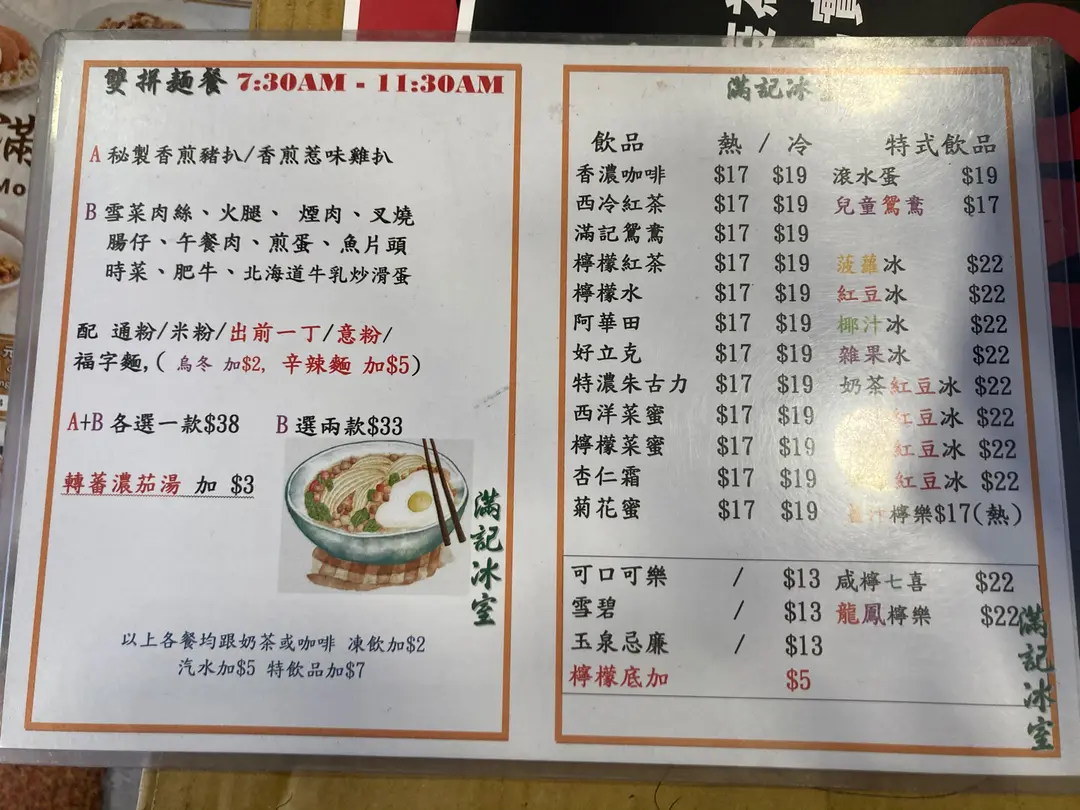 雙拼麵餐 7:30AM - 11:30AM
A 秘製香煎豬扒/香煎惹味雞扒
B 雪菜肉絲、火腿、 煙肉、叉燒
腸仔、午餐肉、煎蛋、魚片頭
時菜、肥牛、北海道牛乳炒滑蛋
配 通粉/米粉/出前一丁/意粉/
福字麵,( 烏冬 加$2, 辛辣麵 加$5)
A+B 各選一款$38 B 選兩款$33
轉蕃濃茄湯 加 $3
滿記冰室
以上各餐均跟奶茶或咖啡 凍飲加$2
汽水加$5 特飲品加$7
滿記冰
飲品 熱 / 冷 特式飲品
香濃咖啡 $17 $19 滾水蛋 $19
西冷紅茶 $17 $19 兒童鴛鴦 $17
滿記鴛鴦 $17 $19
檸檬紅茶 $17 $19 菠蘿冰 $22
檸檬水 $17 $19 紅豆冰 $22
阿華田 $17 $19 椰汁冰 $22
好立克 $17 $19 雜果冰 $22
特濃朱古力 $17 $19 奶茶紅豆冰 $22
西洋菜蜜 $17 $19 紅豆冰 $22
檸檬菜蜜 $17 $19 紅豆冰 $22
杏仁霜 $17 $19 紅豆冰 $22
菊花蜜 $17 $19 汁檸樂$17(熱)
可口可樂 / $13 咸檸七喜 $22
雪碧 / $13 龍鳳檸樂 $22
玉泉忌廉 / $13
檸檬底加 $5
滿記冰室
滿